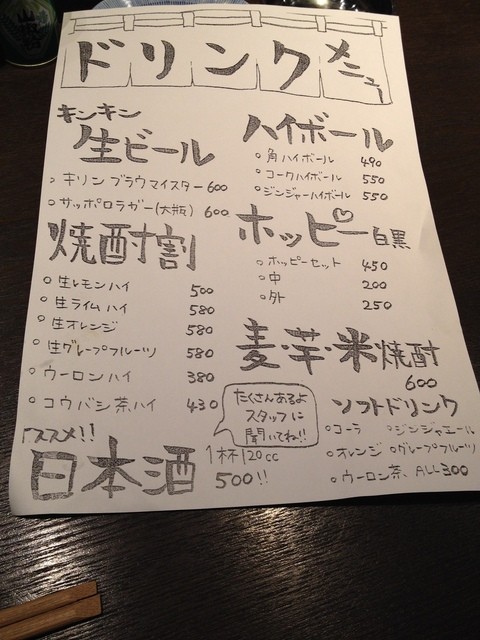 ドリンクメニュー
キンキン
生ビール
キリン ブラウマイスター 600
サッポロラガー(大瓶) 600
焼酎割
生レモンハイ 500
生ライムハイ 580
生オレンジ 580
生グレープフルーツ 580
ウーロンハイ 380
コウバシ茶ハイ 430
ススメ!!
日本酒
1杯120cc
500!!
たくさんあるよ
スタッフに
聞いてね!!
ハイボール
角ハイボール 490
コークハイボール 550
ジンジャーハイボール 550
ホッピー 白黒
ホッピーセット 450
中 200
外 250
麦・芋・米焼酎
600
ソフトドリンク
コーラ ジンジャエール
オレンジ グレープフルーツ
ウーロン茶、ALL300